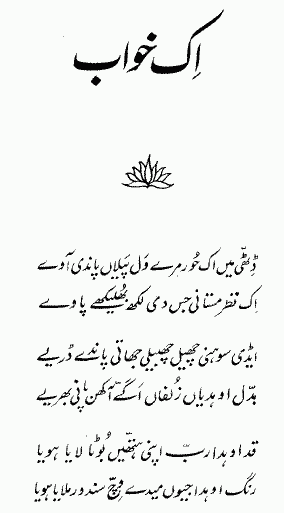 اِک خواب
ڈِٹھی میں اک حُور مرے وَل پَہلاں پاندی آوے
اِک نظر مستانی جس دی لکھ بھُلیکھے پاوے
ایڈی سوہنی چھیل چھبیلی جھاتی پاندے ڈریے
بدّل اوہدیاں زُلفاں اَگّے آکھن پانی بھریے
قد اوہدا ربّ اپنی ہتھّیں بُوٹا لایا ہویا
رنگ اوہدا جیوں میدے وِچّ سندور ملایا ہویا